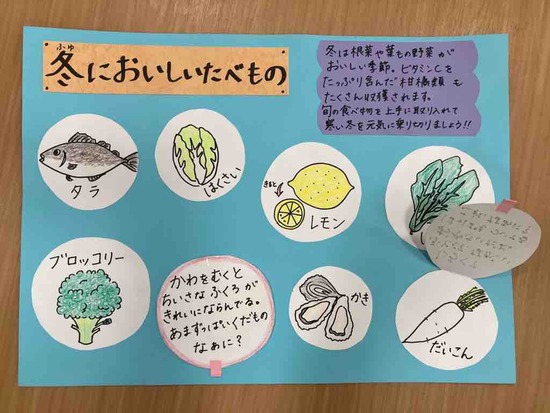 ふゆ
冬においしいたべもの
冬は根菜や葉もの野菜が
おいしい季節。ビタミンCを
たっぷり含んだ柑橘類も
たくさん収穫されます。
旬の食べ物を上手に取り入れて
寒い冬を元気に乗り切りましょう!!
タラ
はくさい
きると
レモン
ブロッコリー
かわをむくと
ちいさなふくろが
きれいにならんでる。
あまずっぱいくだもの
なぁに?
かき
だいこん